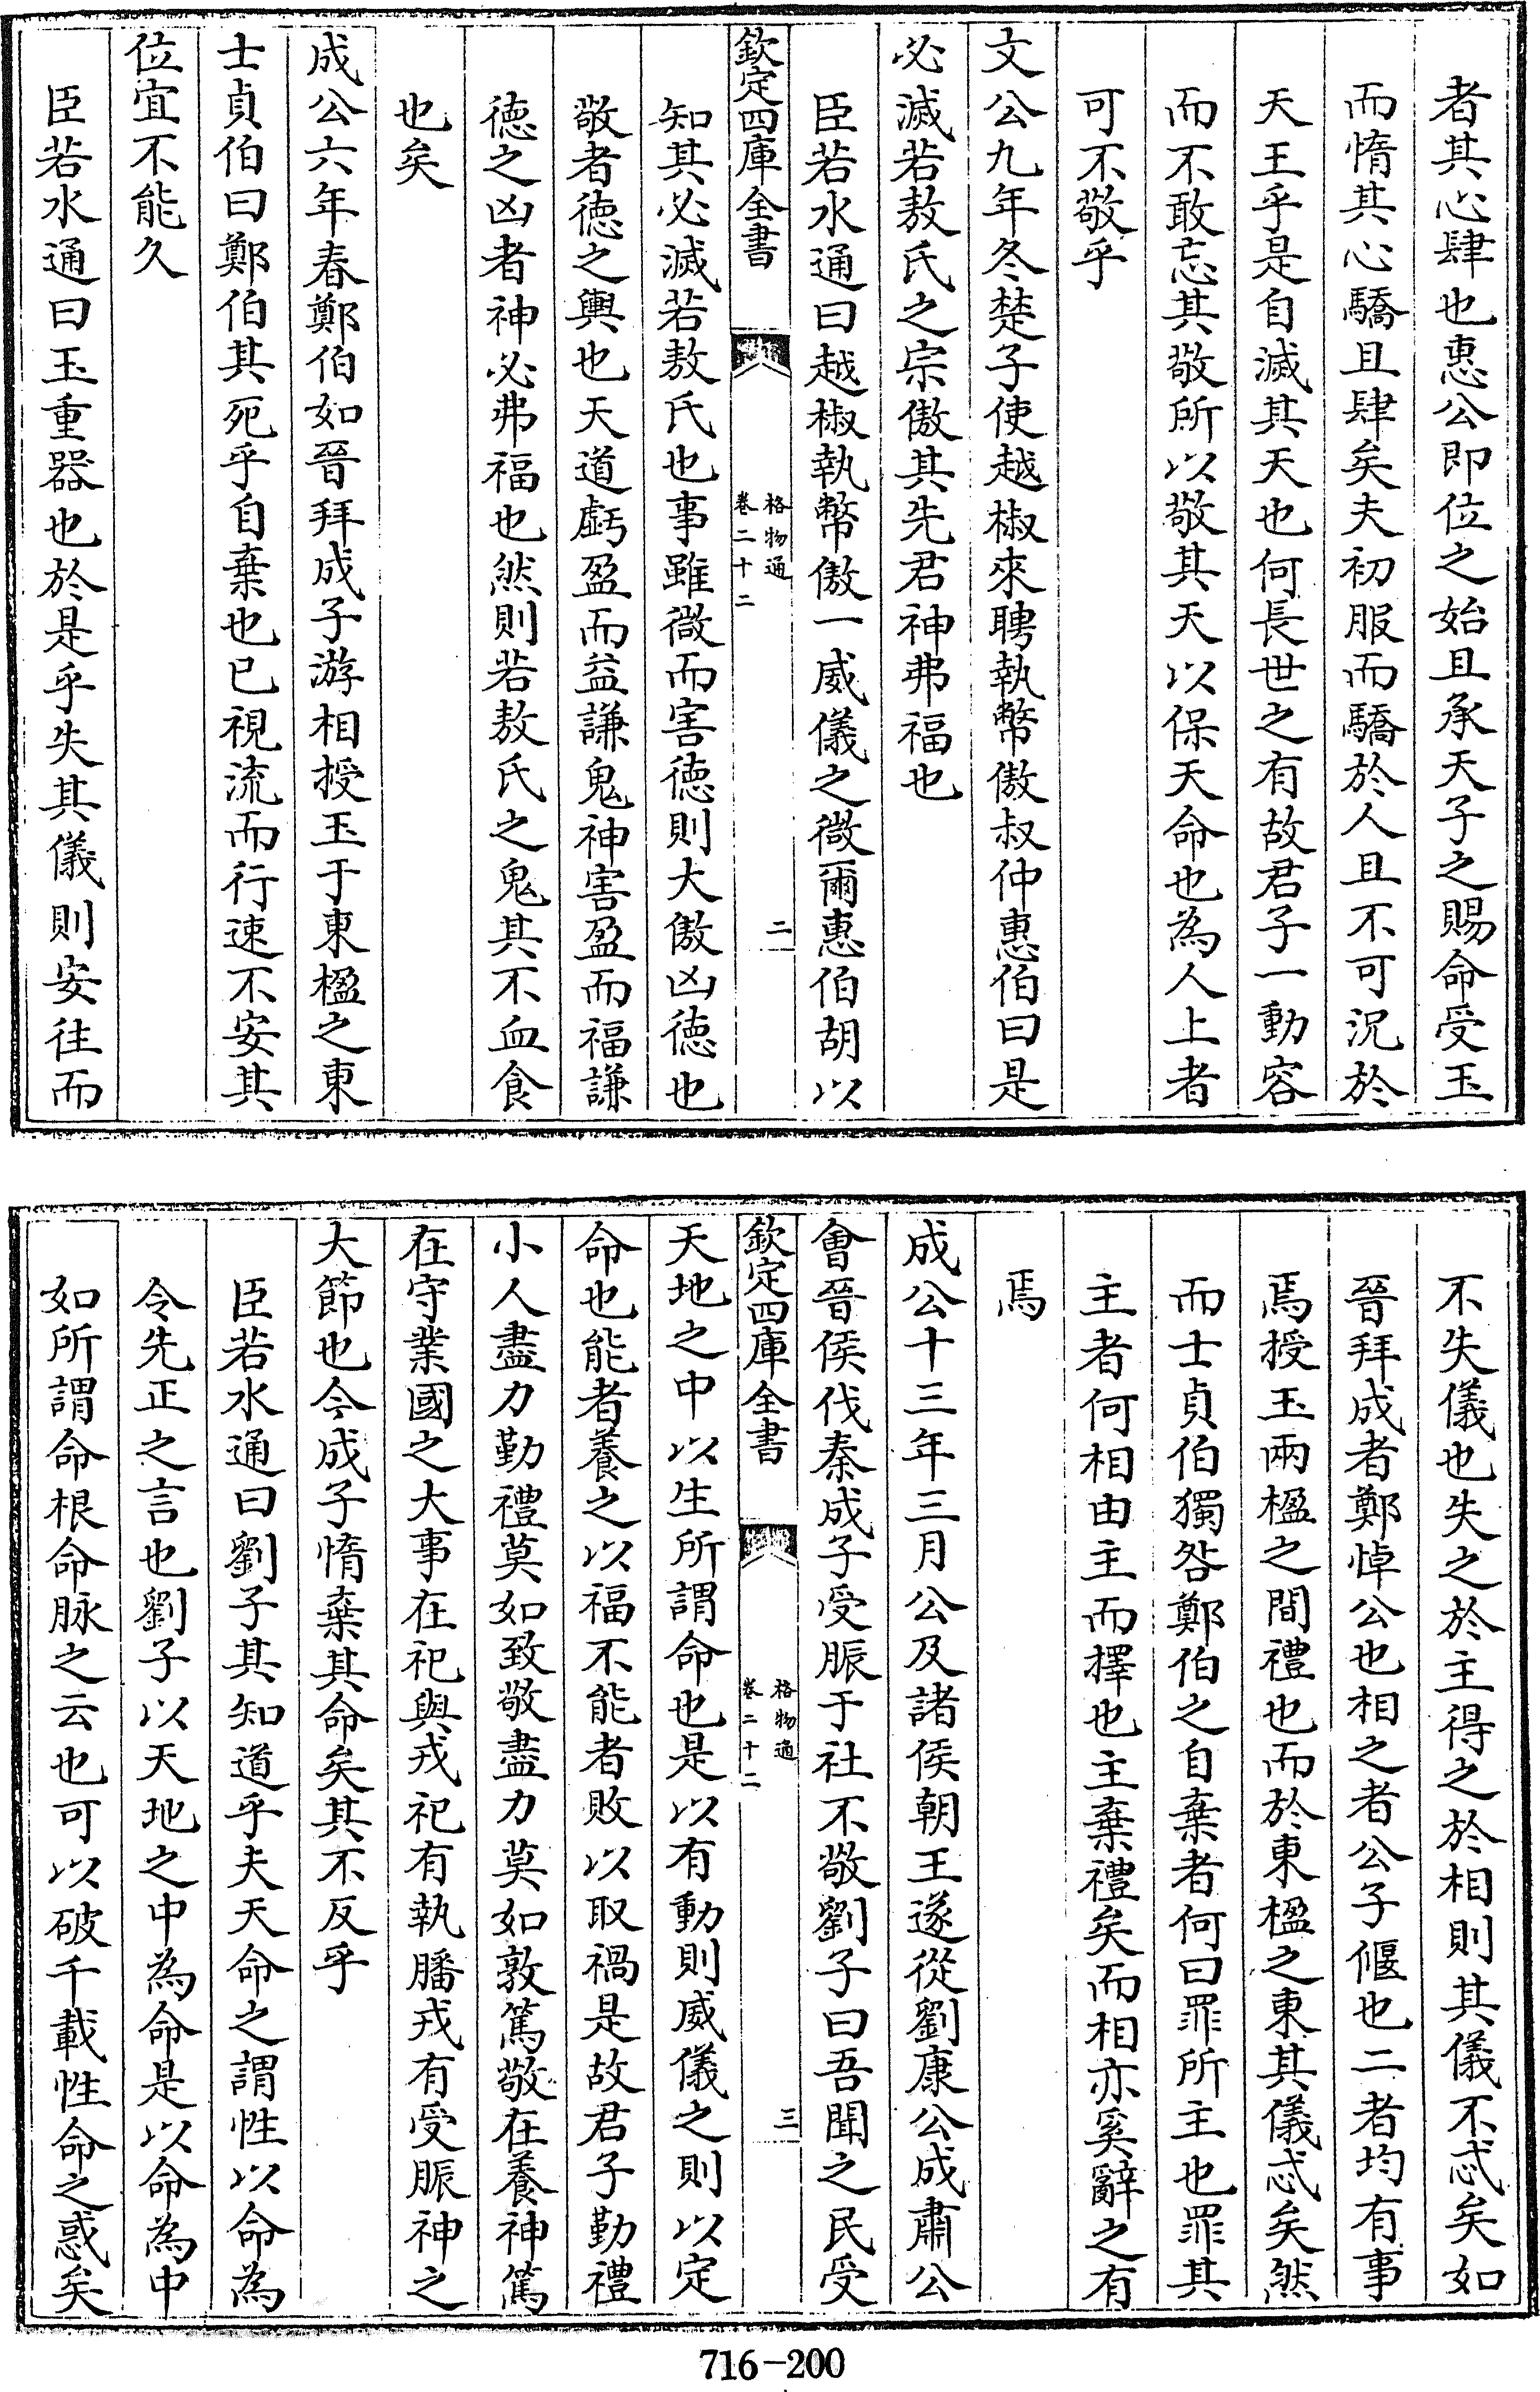 者其心肆也惠公即位之始且承天子之賜命受玉
而惰其心驕且肆矣夫初服而驕於人且不可況於
天王乎是自滅其天也何長世之有故君子一動容
而不敢忘其敬所以敬其天以保天命也為人上者
可不敬乎
文公九年冬楚子使越椒來聘執幣傲叔仲惠伯曰是
必滅若敖氏之宗傲其先君神弗福也
臣若水通曰越椒執幣傲一威儀之微爾惠伯胡以
欽定四庫全書
格物通
卷二十二
二
知其必滅若敖氏也事雖微而害徳則大傲凶徳也
敬者徳之輿也天道虧盈而益謙鬼神害盈而福謙
徳之凶者神必弗福也然則若敖氏之鬼其不血食
也矣
成公六年春鄭伯如晉拜成子游相授玉于東楹之東
士貞伯曰鄭伯其死乎自棄也已視流而行速不安其
位宜不能久
臣若水通曰玉重器也於是乎失其儀則安往而
不失儀也失之於主得之於相則其儀不忒矣如
晉拜成者鄭悼公也相之者公子偃也二者均有事
焉授玉兩楹之間禮也而於東楹之東其儀忒矣然
而士貞伯獨咎鄭伯之自棄者何曰罪所主也罪其
主者何相由主而擇也主棄禮矣而相亦奚辭之有
焉
成公十三年三月公及諸侯朝王遂從劉康公成肅公
會晉侯伐秦成子受脤于社不敬劉子曰吾聞之民受
欽定四庫全書
格物通
卷二十二
三
天地之中以生所謂命也是以有動則威儀之則以定
命也能者養之以福不能者敗以取禍是故君子勤禮
小人盡力勤禮莫如致敬盡力莫如敦篤敬在養神篤
在守業國之大事在祀與戎祀有執膰戎有受脤神之
大節也今成子惰棄其命矣其不反乎
臣若水通曰劉子其知道乎夫天命之謂性以命為
令先正之言也劉子以天地之中為命是以命為中
如所謂命根命脉之云也可以破千載性命之惑矣
716-200